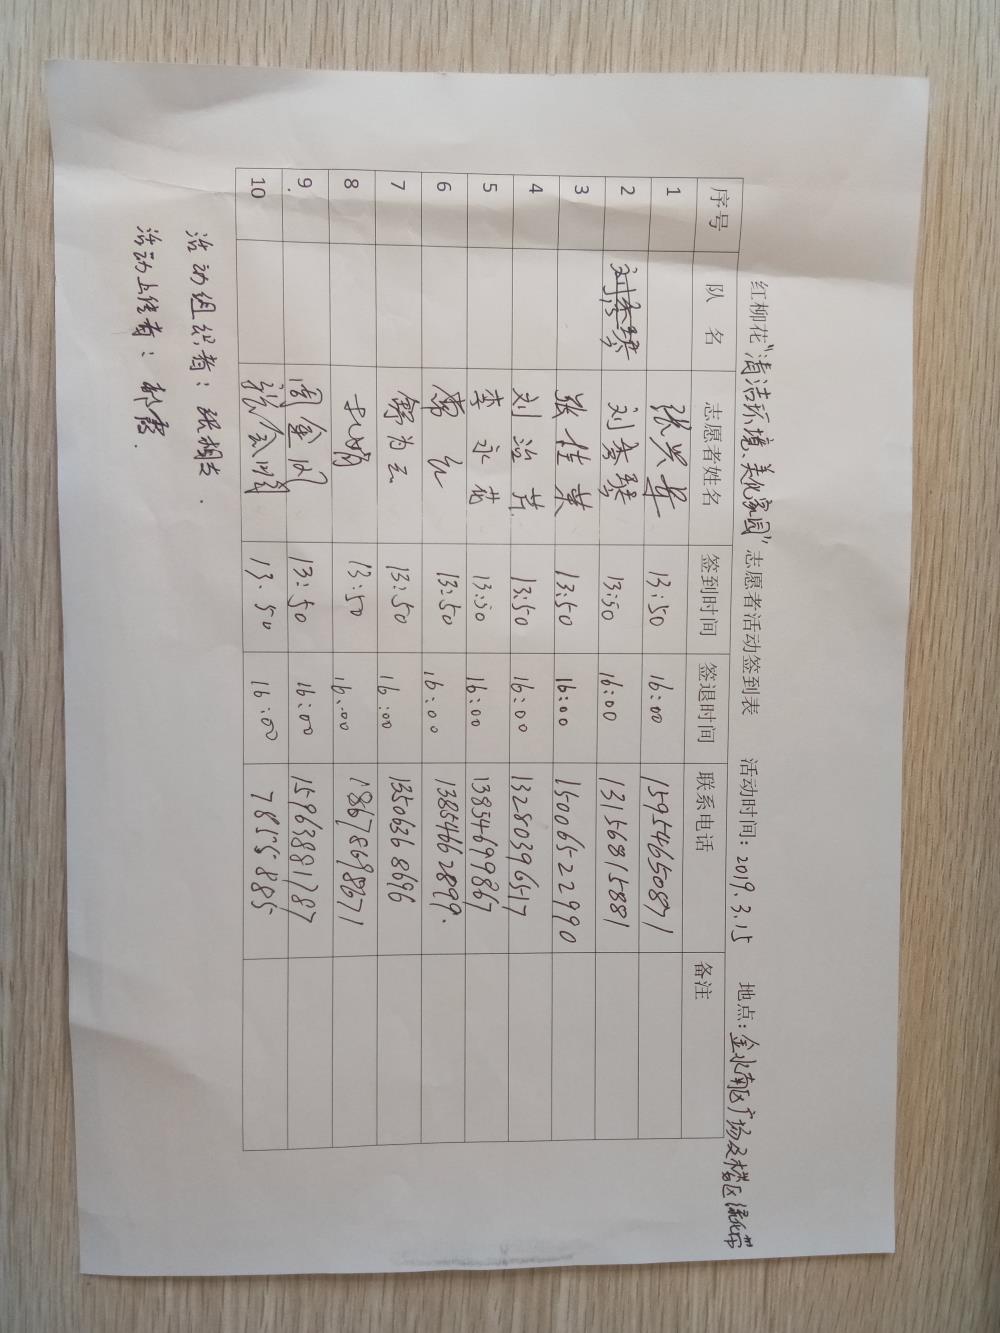 红柳花“清洁环境、美化家园”志愿者活动签到表 活动时间：2019.3.15 地点：金水南区广场及楼区绿化带
序号 队 名 志愿者姓名 签到时间 签退时间 联系电话 备注
1 张兴军 13:50 16:00 15954650871
2 刘秀琴 13:50 16:00 13156815881
3 张桂英 13:50 16:00 15006522990
4 刘治芹 13:50 16:00 13280396517
5 李永花 13:50 16:00 13854699867
6 13:50 16:00 13854662899.
7 13:50 16:00 13506368696
8 13:50 16:00 18678698671
9 周金凤 13:50 16:00 15963881787
10 13.50 16:00 7855885
活动组织者：张
活动上传者：